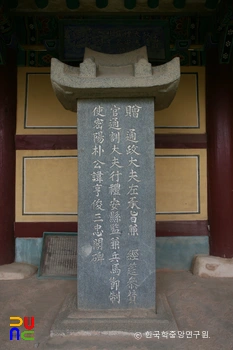 贈 通政大夫左承旨兼 經筵參贊
官通訓大夫行禮安縣監兼兵馬節制
使密陽朴公諱亨俊三忠閣碑
© 한국학중앙연구원